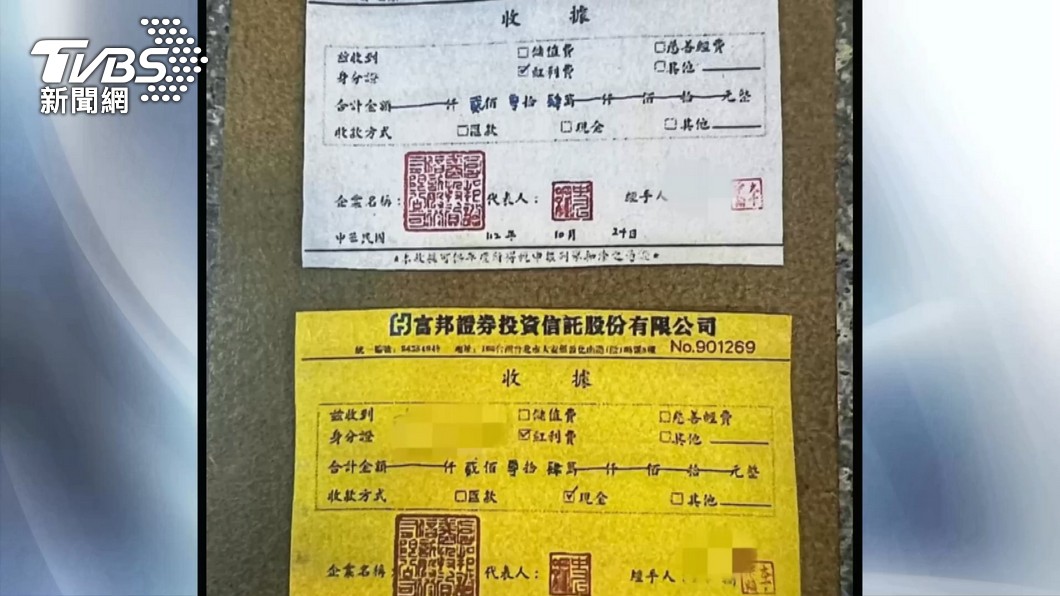 TVBS
新聞網
收據
茲收到 □儲值費 □慈善經費
身分證 ☑紅利費 □其他
合計金額 仟 貳佰 零拾 肆萬 仟 佰 拾 元整
收款方式 □匯款 □現金 □其他
企業名稱: 代表人: 經手人
中華民國 112年 10月 24日
富邦證券投資信託股份有限公司
統一編號: 地址: No.901269
收據
茲收到 □儲值費 □慈善經費
身分證 ☑紅利費 □其他
合計金額 仟 貳佰 零拾 肆萬 仟 佰 拾 元整
收款方式 □匯款 ☑現金 □其他
企業名稱 代表人: 經手人